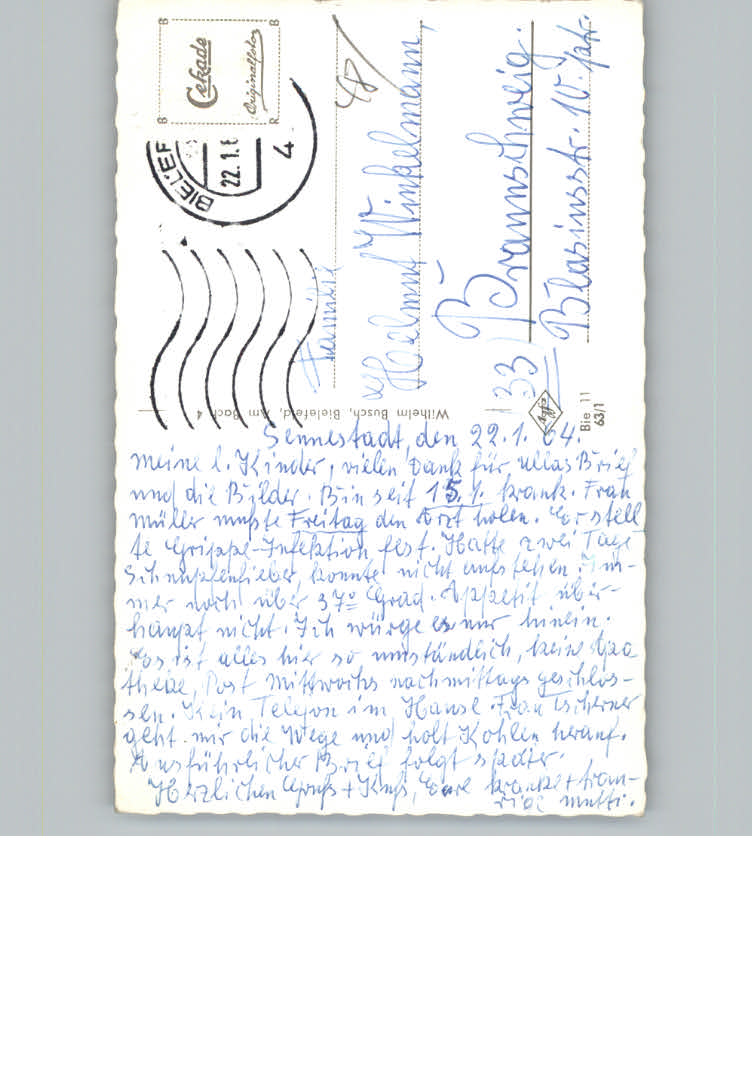 Cekade
Originalfoto
BIELEF
22.1.6
4
48
Familie
Helmut Winkelmann,
(33) Braunschweig.
Blasiusstr. 10.
Wilhelm Busch, Bielefeld, Am Bach 4
Agfa
Bie 11
63/1
Sennestadt, den 22.1.64.
Meine l. Kinder, vielen Dank für Ullas Brief
und die Bilder. Bin seit 15.1. krank. Frau
Müller mußte Freitag den Arzt holen. Er stell
te Grippe-Infektion fest. Hatte zwei Tage
Schnupfenfieber, konnte nicht aufstehen. Im-
mer noch über 37º Grad. Appetit über-
haupt nicht. Ich würge es nur hinein.
Es ist alles hier so umständlich, keine Apo
theke, Post Mittwochs nachmittags geschlos-
sen. Kein Telefon im Hause. Frau Tscherner
geht mir die Wege und holt Kohlen herauf.
Ausführlicher Brief folgt später.
Herzlichen Gruß + Kuß, Eure kranke + trau-
rige Mutti.